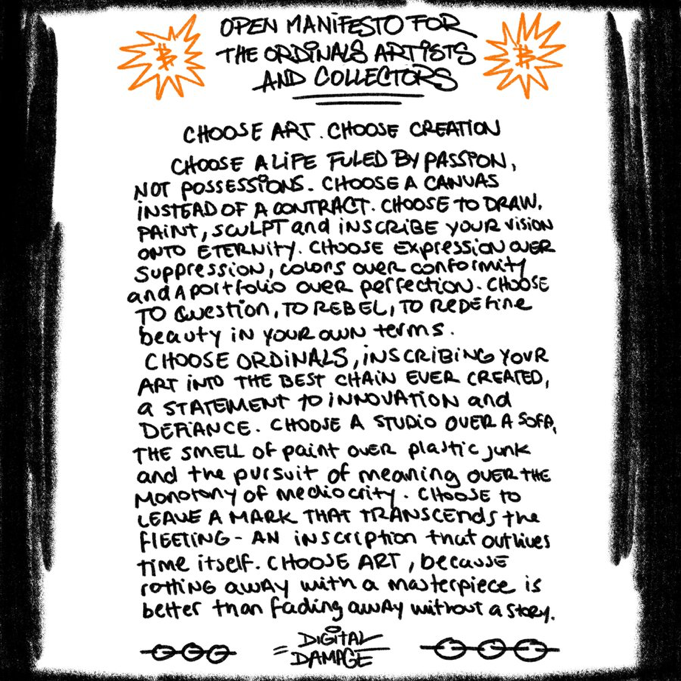 OPEN MANIFESTO FOR
THE ORDINALS ARTISTS
AND COLLECTORS
CHOOSE ART. CHOOSE CREATION
CHOOSE A LIFE FULED BY PASSION,
NOT POSSESSIONS. CHOOSE A CANVAS
INSTEAD OF A CONTRACT. CHOOSE TO DRAW.
PAINT, SCULPT and INSCRIBE YOUR VISION
ONTO ETERNITY. CHOOSE EXPRESSION OVER
SUPPRESSION, COLORS OVER CONFORMITY
and A PORTFOLIO OVER PERFECTION. CHOOSE
TO QUESTION, TO REBEL, TO REDEFINE
beauty IN YOUR OWN TERMS.
CHOOSE ORDINALS, INSCRIBING YOUR
ART INTO THE BEST CHAIN EVER CREATED,
A STATEMENT TO INNOVATION and
DEFIANCE. CHOOSE A STUDIO OVER A SOFA,
THE SMELL OF paint OVER plastic junk
and the pursuit of meaning OVER THE
Monotony of mediocrity. CHOOSE TO
LEAVE A MARK THAT TRANSCENDS the
FLEETING - AN inscription that outlives
time itself. CHOOSE ART, because
rotting away with a masterpiece is
better than fading away without a story.
= DIGITAL
DAMAGE